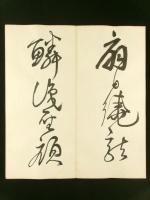 扇日繞龍
鱗識聖顏